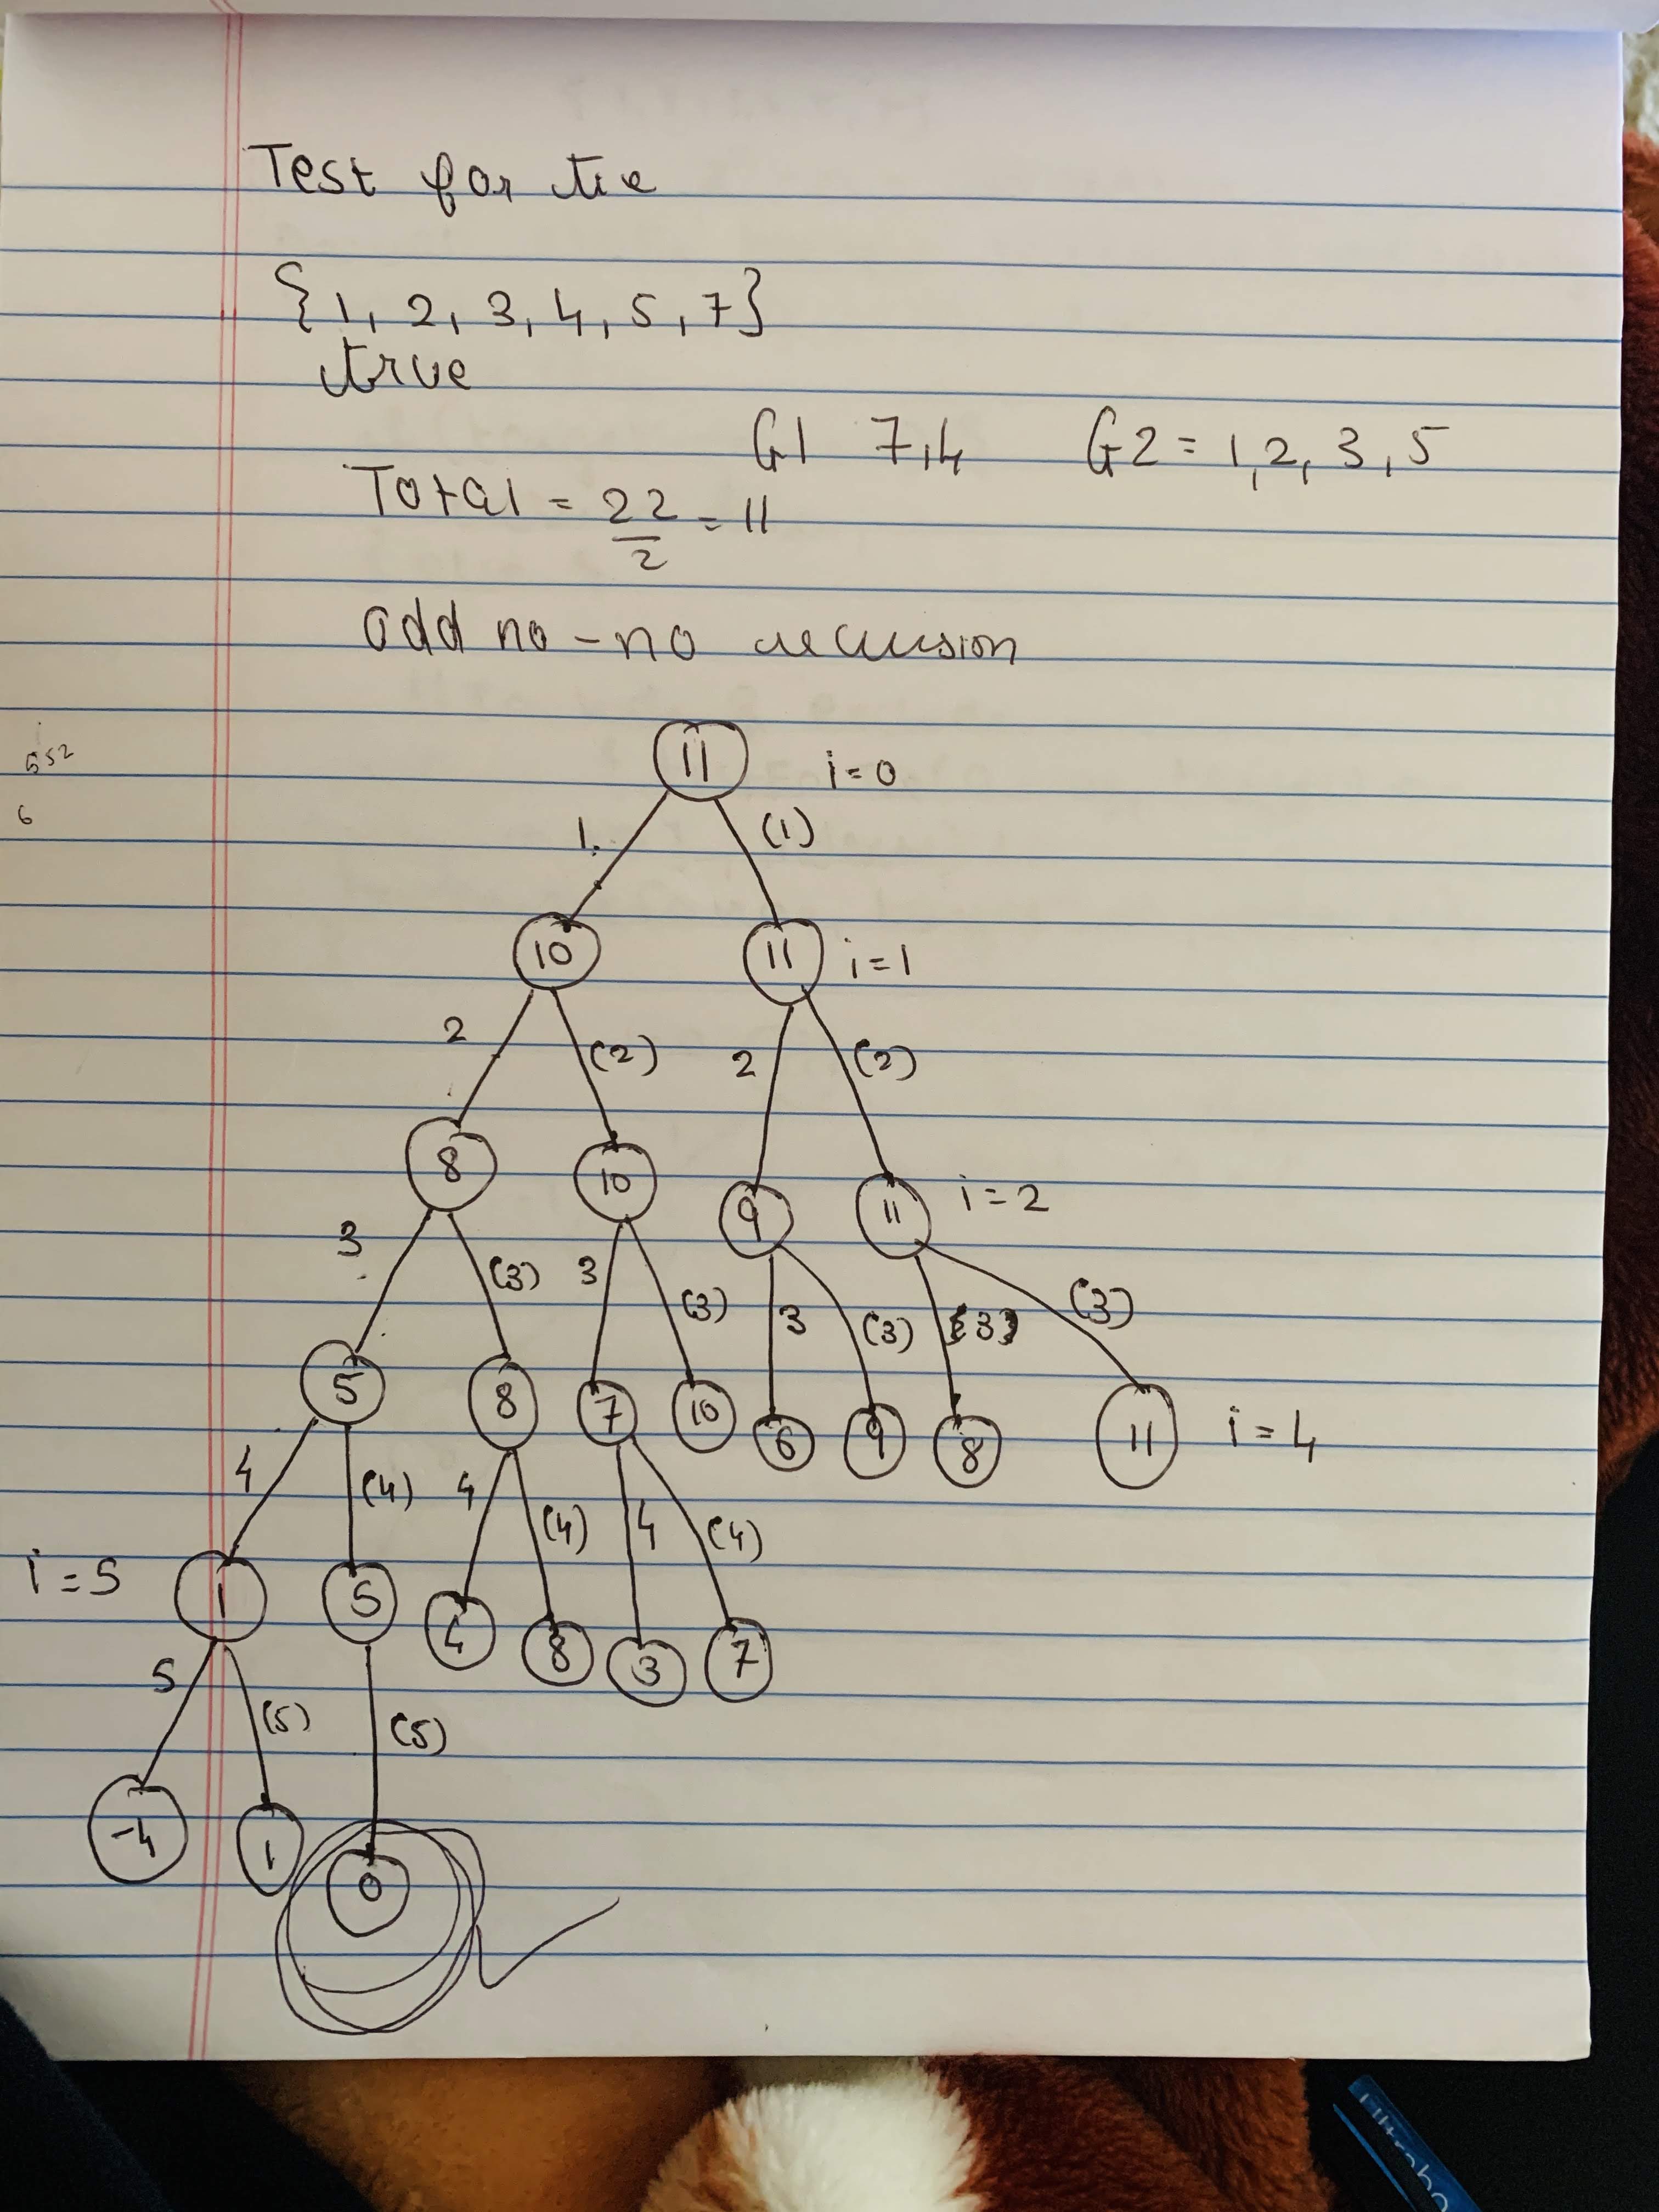 Test for tie
{1, 2, 3, 4, 5, 7}
true
G1 7,4 G2 = 1, 2, 3, 5
Total = 22/2 = 11
odd no - no recursion
11 i=0
1. (1)
10 11 i=1
2 (2) 2 (2)
8 10 9 11 i=2
3 (3) 3 (3) 3 (3) (3) (3)
5 8 7 10 6 9 8 11 i=4
4 (4) 4 (4) 4 (4)
i=5 1 5 4 8 3 7
5 (5) (5)
-4 1 0
6